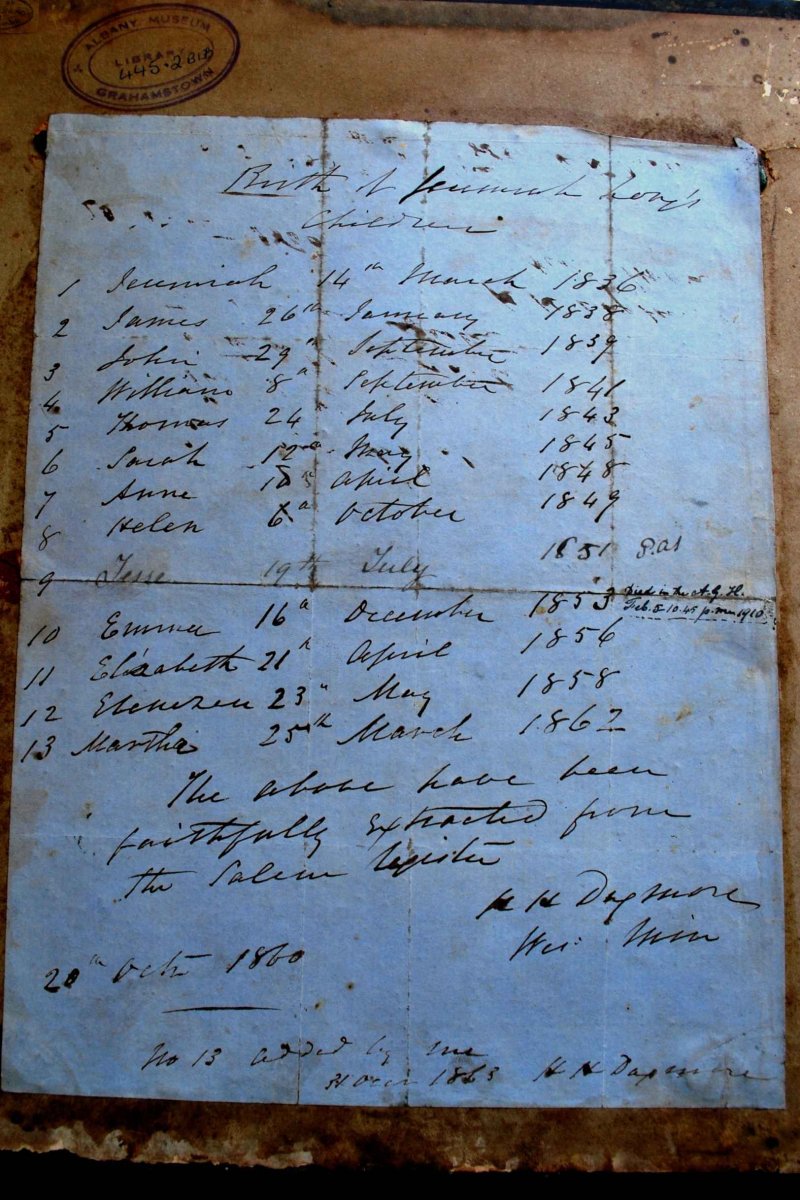 ALBANY MUSEUM
LIBRARY
445.2 BIB
GRAHAMSTOWN
Birth of Jeremiah Long's
Children
1 Jeremiah 14th March 1836
2 James 26th January 1838
3 John 29th September 1839
4 William 8th September 1841
5 Thomas 24th July 1843
6 Sarah 12th May 1845
7 Anne April 1848
8 Helen 6th October 1849
9 Jesse 19th July 1851
10 Emma 16th December 1853 Died in the A.G.H.
Feb. 5 10.45 p.m. 1910
11 Elizabeth 21st April 1856
12 Ebenezer 23rd May 1858
13 Martha 25th March 1862
The above have been
faithfully extracted from
the Salem Register
H H Dugmore
Wes. Min
Octr 1860
No 13 added by me
1863 H H Dugmore